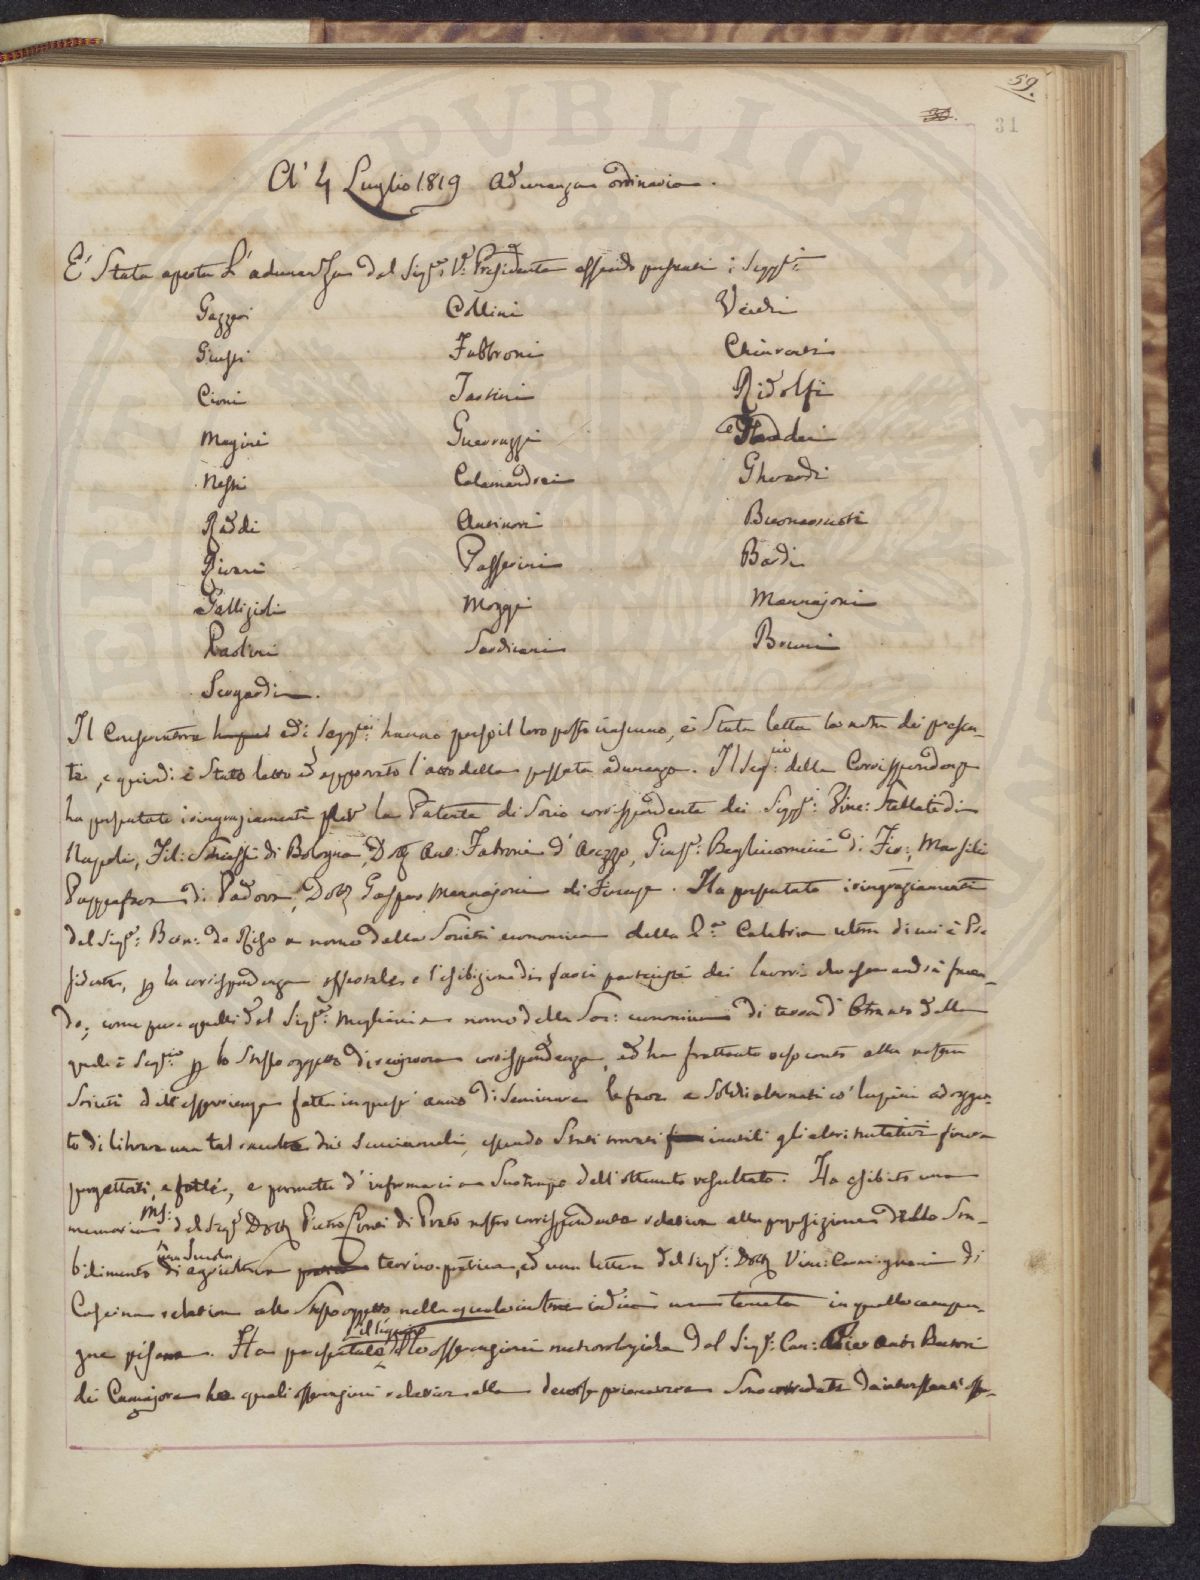 59.
30.
31
A' 4 Luglio 1819 Adunanza ordinaria.
E' Stata aperta L'adunanza dal Sigr. V. Presidente essendo presenti i Sigg.ri
Gazzeri Collini Verdi
Giusti Fabbroni Chiarenti
Cioni Tartini Ridolfi
Magini Guerrazzi Taddei
Nesti Calamandrei Gherardi
Raddi Antinori Buonarroti
Rivani Passerini Bardi
Gallizioli Mozzi Mannajoni
Paolini Sardieri Bruni
Sergardi.
Il Conservatore ed i Sigg.ri hanno preso il loro posto ciascuno, è Stata letta la nota dei presen-
ti, e quindi è Stato letto ed approvato l'atto della passata adunanza. Il Seg.rio della Corrispondenza
ha presentato i ringraziamenti per la Patente di Socio corrispondente dei Sigg.ri: Vinc: Stellati di
Napoli, Fil: Schiassi di Bologna, Dott Ant: Fabroni d'Arezzo, Giusp: Baglincomini di Fir:, Marsili
di Padova, Dott Gasparo Mannajoni di Firenze. Ha presentato i ringraziamenti
del Sigr: Bern: de Riso a nome della Società economica della 2.a Calabria ultra di cui è Pre
sidente, p la corrispondenza e l'esibizione di farci partecipi dei lavori che essa andrà facen-
do, come pure quelli del Sigr: Miglietta a nome della Soc: economica di terra d'Otranto della
quale è Seg.rio p lo Stesso oggetto di reciproca corrispondenza, ed ha frattanto reso conto alla nostra
Società dell'esperienza fatta in quest'anno di Seminare le fave a Solchi alternati co' lupini ad ogget-
to di liberare una tal raccolta dai Succiameli, essendo Stati inutili gli altri tentativi finora
progettati, e fatti, e promette d'informarci a Suo tempo dell'ottenuto resultato. Ha esibito una
memoria Ms: del Sigr Dott Pietro Conti di Prato nostro corrispondente relativa alla proposizione dello Sta-
bilimento una Scuola di agricoltura teorico-pratica, ed una lettera del Sigr: Dott Vinc: Carmignani di
Cascina relativa allo Stesso oggetto nella quale indica una tenuta in quelle campa-
gne pisane. Ha presentato le osservazioni meteorologiche del Sigr: Can: Pier Ant: Butori
di Camajore le quali osservazioni relative alla decorsa primavera Sono corredate da interessanti osse-